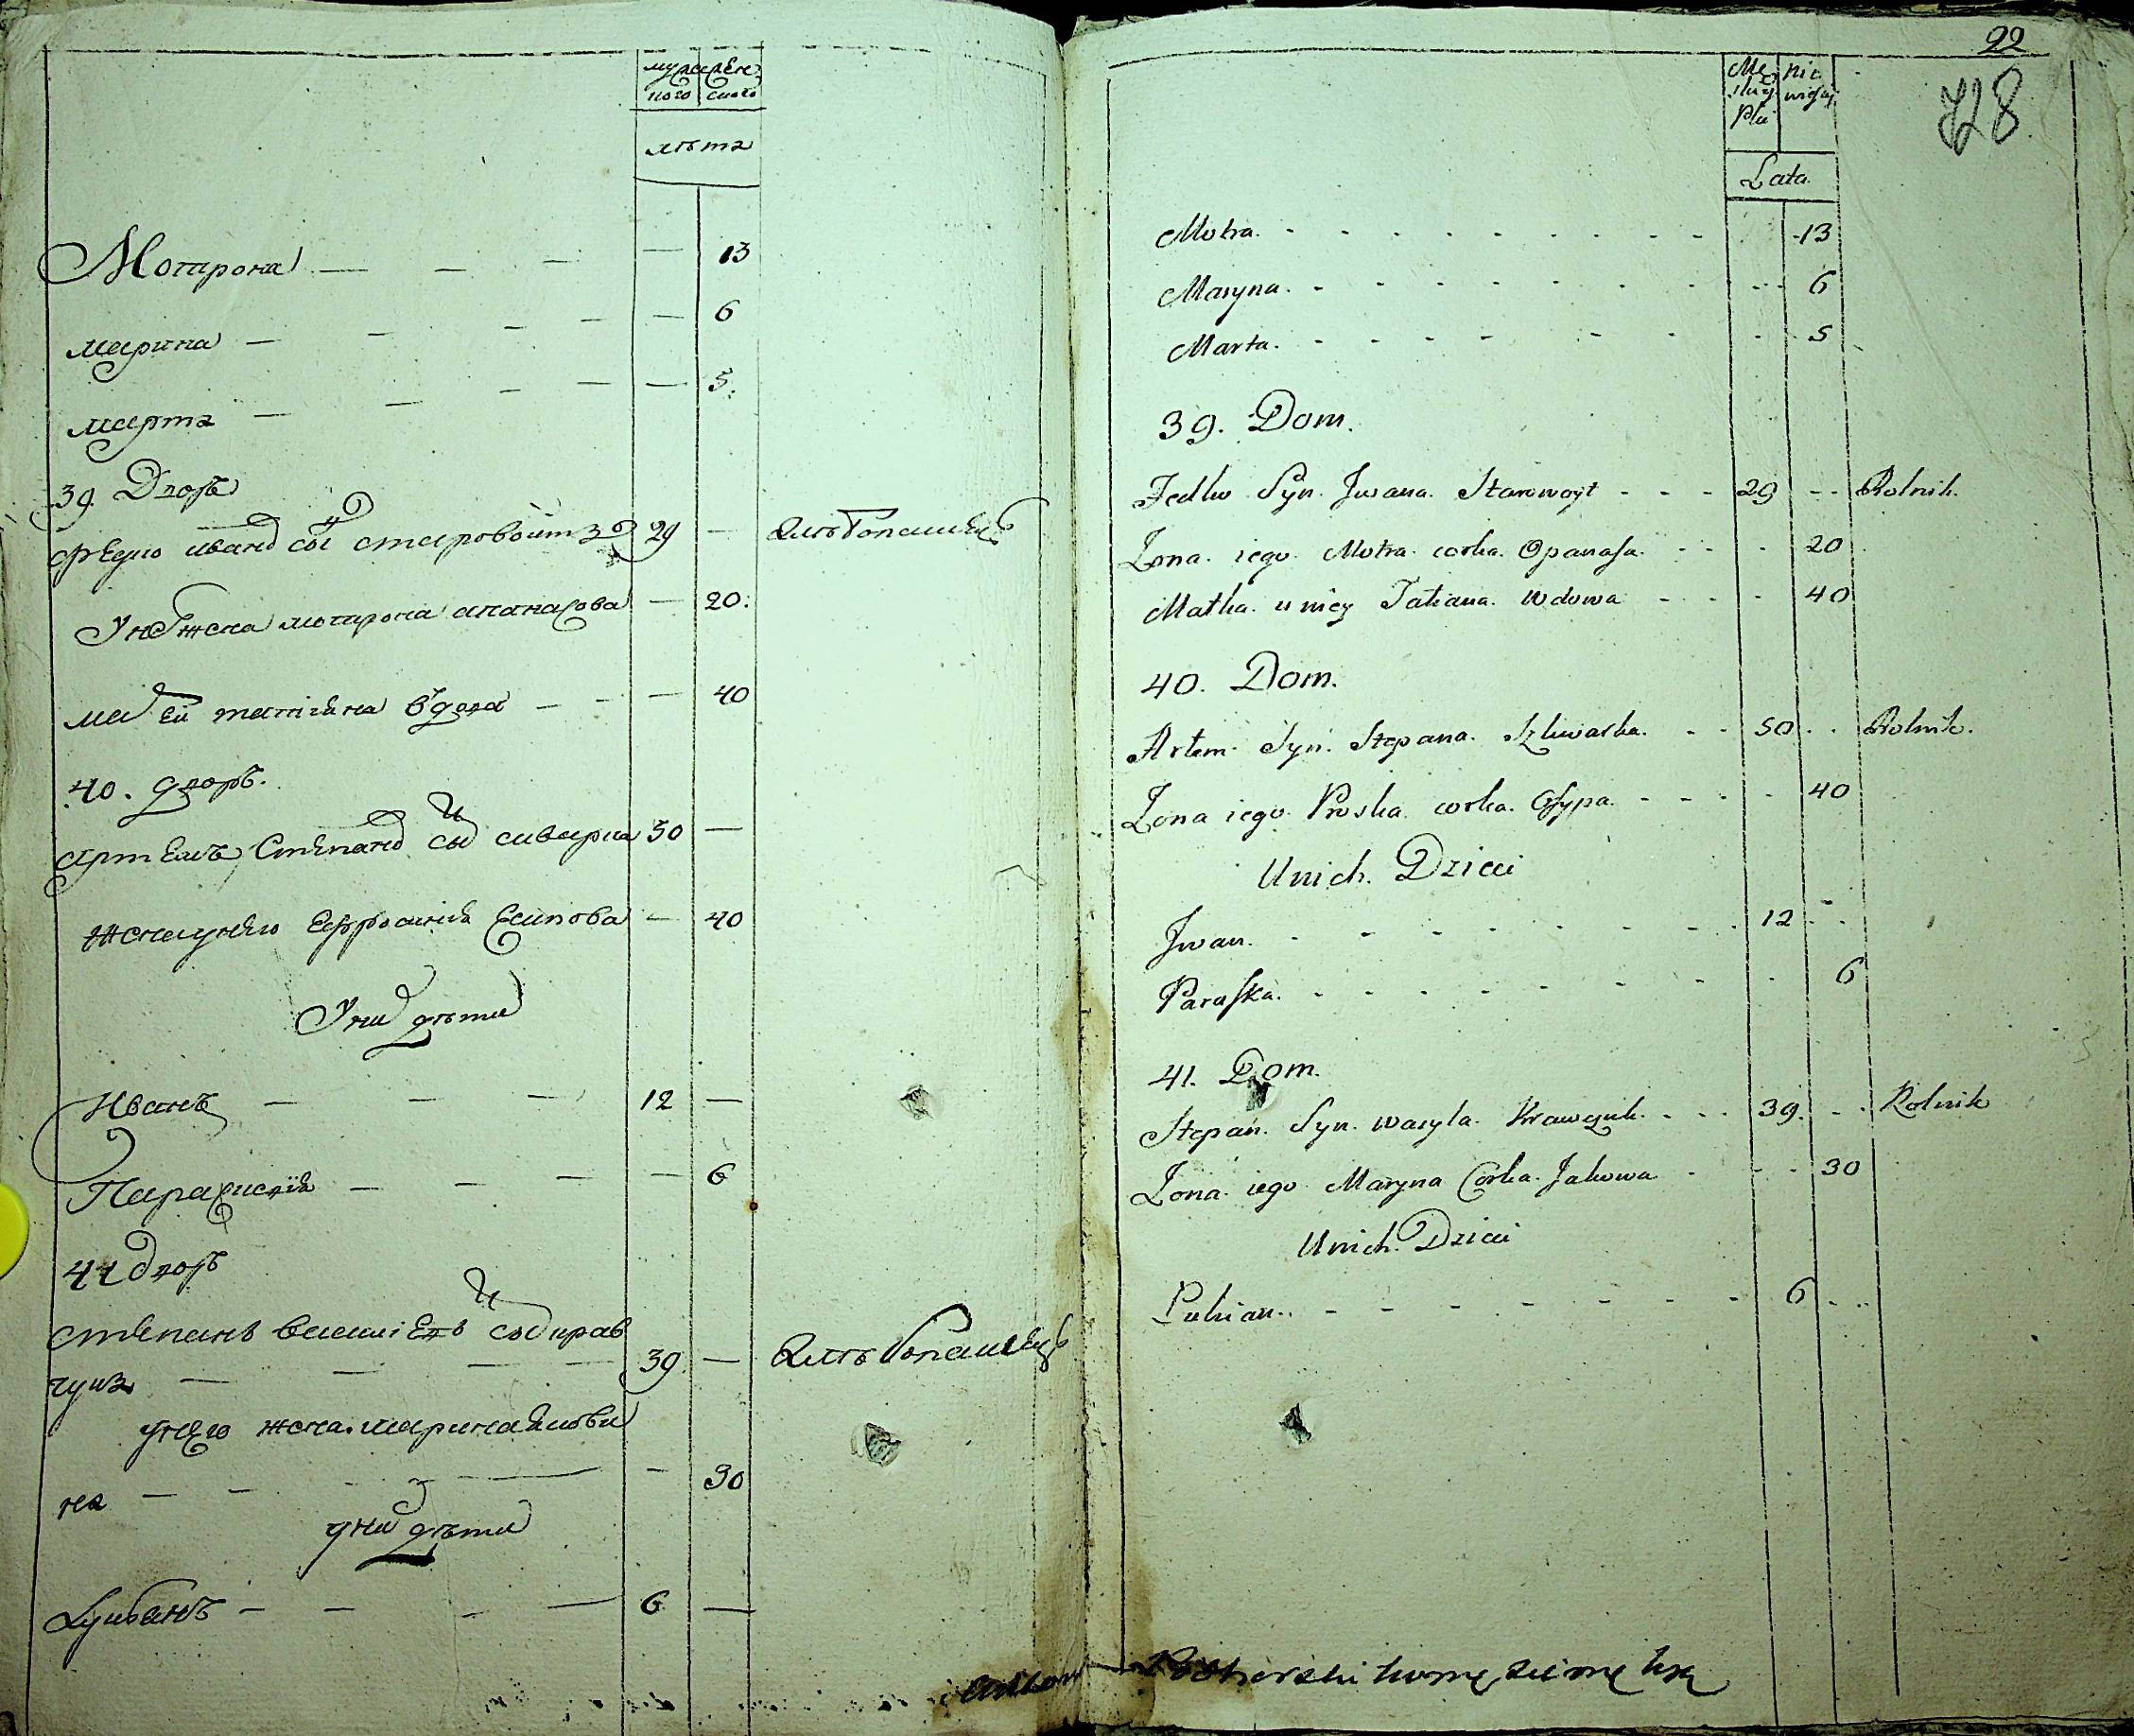 мужеска
женска
лѣта
Мотрона — — — — 13
марина — — — — 6
марта — — — — 5.
39. Дворъ
Фёдко иванов сын старовойтъ 29 —
У него жена мотрона апанасова — 20.
татияна вдова — — — 40
40. дворъ.
артемъ Степанов сын сикарка 50 —
жена у него Ефросиния Есипова — 40
У них дѣти
Иванъ — — — 12 —
Параскевія — — — — 6
41 дворъ
степанъ василіевъ сын крав
чукъ — — — — 39 —
у него жена марина якови
на — — — — — 30
у них дѣти
Лукъянъ — — — — 6 —
22
728
Lata.
Motra. - - - - - - - - 13
Maryna. - - - - - - - - 6
Marta. - - - - - - - - 5
39. Dom.
Fedko Syn. Jwana. Starowoyt - - - 29 - - Rolnik.
Zona. iego. Motra. corka. Opanasa. - - - 20
Matka. u niey Tatiana. Wdowa - - - - 40
40. Dom.
Artem. Syn. Stepana. Szkwarka. - - 50 - - Rolnik.
Zona iego. Proska. corka. Osypa. - - - - 40
Unich. Dzieci
Jwan. - - - - - - - - 12 - -
Paraska. - - - - - - - - 6
41. Dom.
Stepan. Syn. wasyla. Krawczuk. - - - 39. - - Rolnik
Zona. iego Maryna Corka. Jakowa - - - 30
Unich. Dzieci
Lukian. - - - - - - - - 6 - -